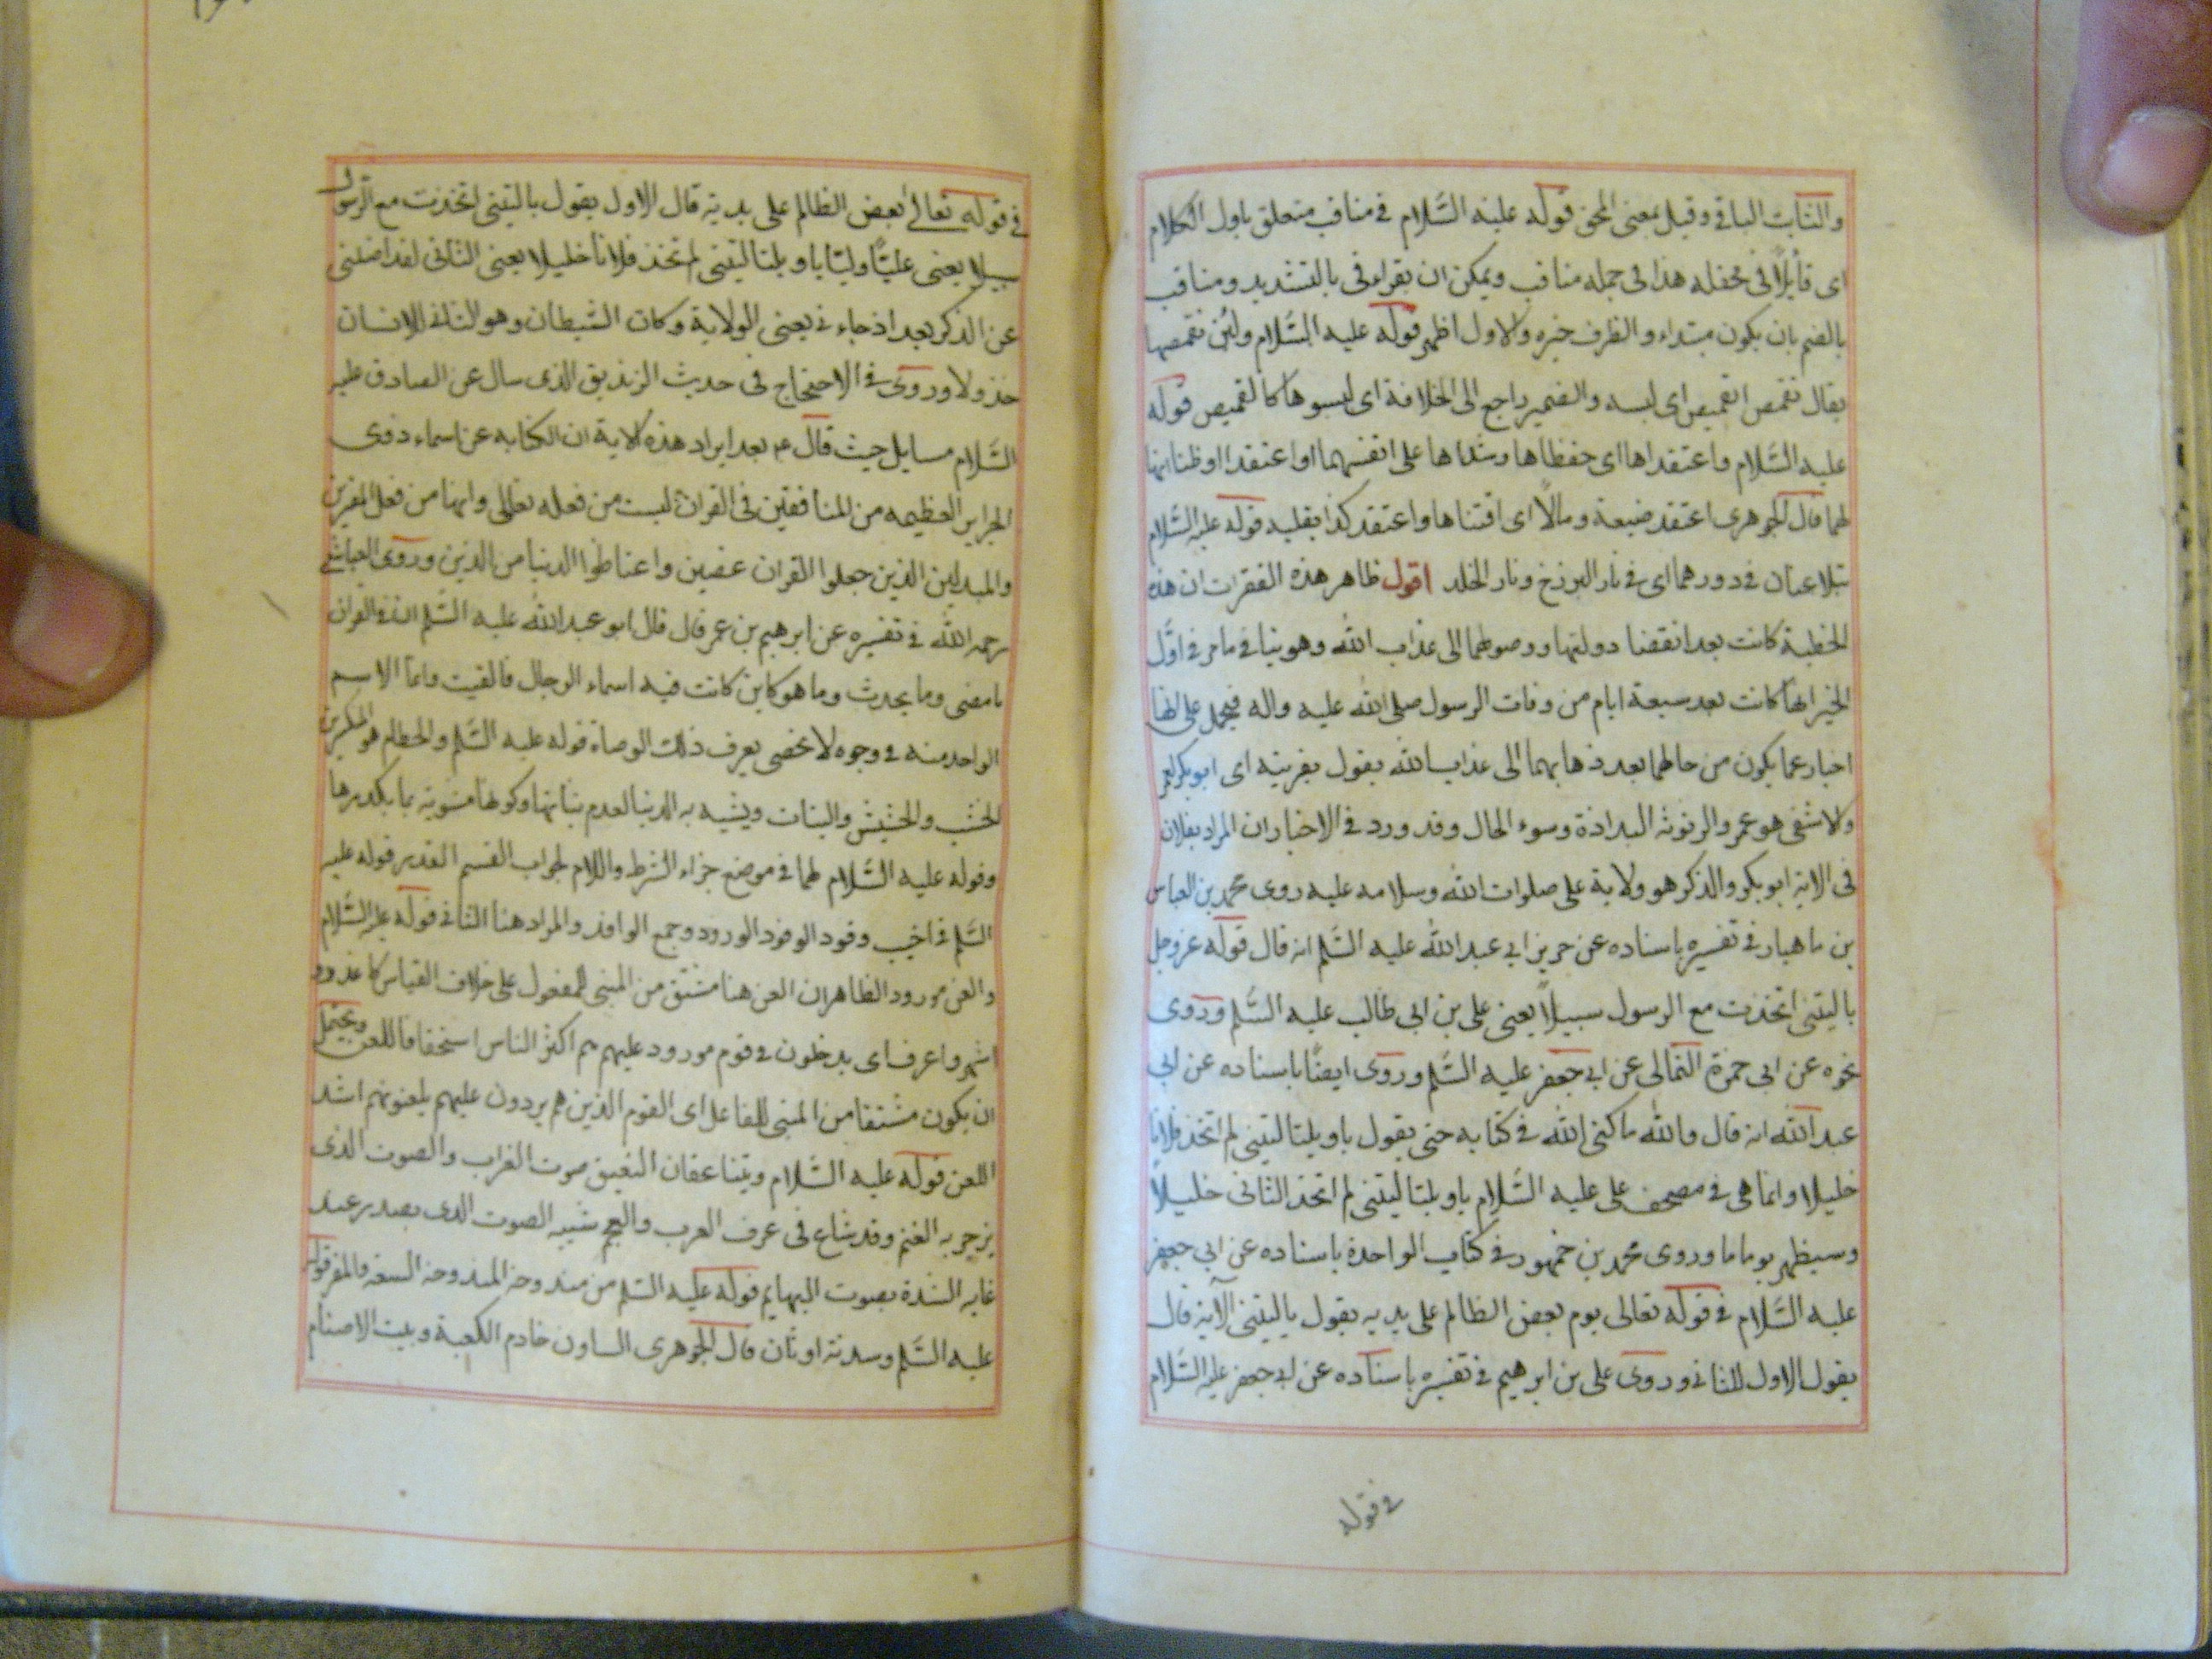 والثابت الباقي وقيل بمعنى المحق قوله عليه السَّلام في مناقب متعلق باول الكلام
اى قائلًا في محفله هذا في جمله مناقب ويمكن ان يقراء في بالتشديد ومناقب
بالضم بان يكون مبتداء والظرف خبره والاول اظهر قوله عليه السَّلام ولئن تقمصها
يقال تقمص القميص اى لبسه والضمير راجع الى الخلافة اى لبسوها كالقميص قوله
عليه السَّلام واعتقداها اى حفظاها وشداها على انفسهما او اعتقدا او ظنا انها
لهما قال الجوهرى اعتقد ضيعة ومالًا اى اقتناها واعتقد كذا بقلبه قوله عليه السَّلام
يتلاعنان في دورهما اى في نار البرزخ ونار الخلد اقول ظاهر هذه الفقرات ان هذه
الخطبة كانت بعد انقضا دولتهما ووصولهما الى عذاب الله وهو ينافي ما مر في اوَّل
الخبر انها كانت بعد سبعة ايام من وفات الرسول صلى الله عليه واله فيحمل على انها
اخبار عما يكون من حالهما بعد ذهابهما الى عذاب الله يقول بقرينه اى ابوبكر لعمر
والاشقى هو عمر والرثوثه البذاذة وسوء الحال وقد ورد في الاخبار ان المراد بفلان
في الاية ابوبكر والذكر هو ولاية على صلوات الله وسلامه عليه روى محمد بن العباس
بن ماهيار في تفسيره باسناده عن حريز ابى عبد الله عليه السَّلم انه قال قوله عزوجل
ياليتنى اتخذت مع الرسول سبيلًا يعنى على بن ابى طالب عليه السَّلم وروى
نحوه عن ابى حمزة الثمالى عن ابى جعفر عليه السَّلم وروى ايضًا باسناده عن ابى
عبد الله انه قال والله ما كنى الله في كتابه حتى يقول ياويلتا ليتنى لم اتخذ فلانا
خليلا وانما هى في مصحف على عليه السَّلام ياويلتا ليتنى لم اتخذ الثانى خليلاً
وسيظهر يوما ما وروى محمد بن جمهور في كتاب الواحدة باسناده عن ابى جعفر
عليه السَّلام في قوله تعالى يوم يعض الظالم على يديه يقول ياليتنى الآية قال
يقول الاول للثانى وروى على بن ابرهيم في تفسيره باسناده عن ابى جعفر عليه السَّلام
في قوله
في قوله تعالى يعض الظالم على يديه قال الاول يقول ياليتنى اتخذت مع الرسول
سبيلا يعنى عليًّا وليًّا ياويلتا ليتنى لم اتخذ فلانا خليلا يعنى الثانى لقد اضلنى
عن الذكر بعد اذ جاءنى يعنى الولاية وكان الشيطان وهو الثانى للانسان
خذولا وروى في الاحتجاج في حديث الزنديق الذى سال عن الصادق عليه
السَّلام مسايل حيث قال ع بعد ايراد هذه الاية ان الكناية عن اسماء ذوى
الجراير العظيمه من المنافقين في القران ليست من فعله تعالى وانها من فعل المغيرين
والمبدلين الذين جعلوا القران عضين واعتاضوا الدنيا من الدين وروى العياشى
رحمه الله في تفسيره عن ابرهيم بن عمر قال قال ابو عبد الله عليه السَّلم ان في القران
ما مضى وما يحدث وما هو كاين كانت فيه اسماء الرجال فالقيت وانما الاسم
الواحد منه في وجوه لا تحصى يعرف ذلك الوصاة قوله عليه السَّلم والحطام هو المتكسر من
الخشب والحشيش والنبات ويشبه به الدنيا لعدم ثباتها وكونها مشوبة بما يكدرها
وقوله عليه السَّلام لهما في موضع جزاء الشرط واللام لجواب القسم المقدر قوله عليه
السَّلم في اخيب وفود الوفود الورود وجمع الوافد والمراد هنا الثانى قوله عليه السَّلام
والعن مورود الظاهر ان العن هنا مشتق من المبنى للمفعول على خلاف القياس كاعذر و
اشهر واعرف اى يدخلون في قوم مورود عليهم هم اكثر الناس استحقاقا للعن ويحتمل
ان يكون مشتقا من المبنى للفاعل اى القوم الذين هم يردون عليهم يلعنونهم اشد
اللعن قوله عليه السَّلام ويتناعقان النعيق صوت الغراب والصوت الذى
يزجر به الغنم وقد شاع في عرف العرب والعجم شبيه الصوت الذى يصدر عند
غايه الشدة بصوت البهايم قوله عليه السَّلم من مندوحه المندوحه السعه والمفر قوله
عليه السَّلم وسدنة اوثان قال الجوهرى السادن خادم الكعبة وبيت الاصنام